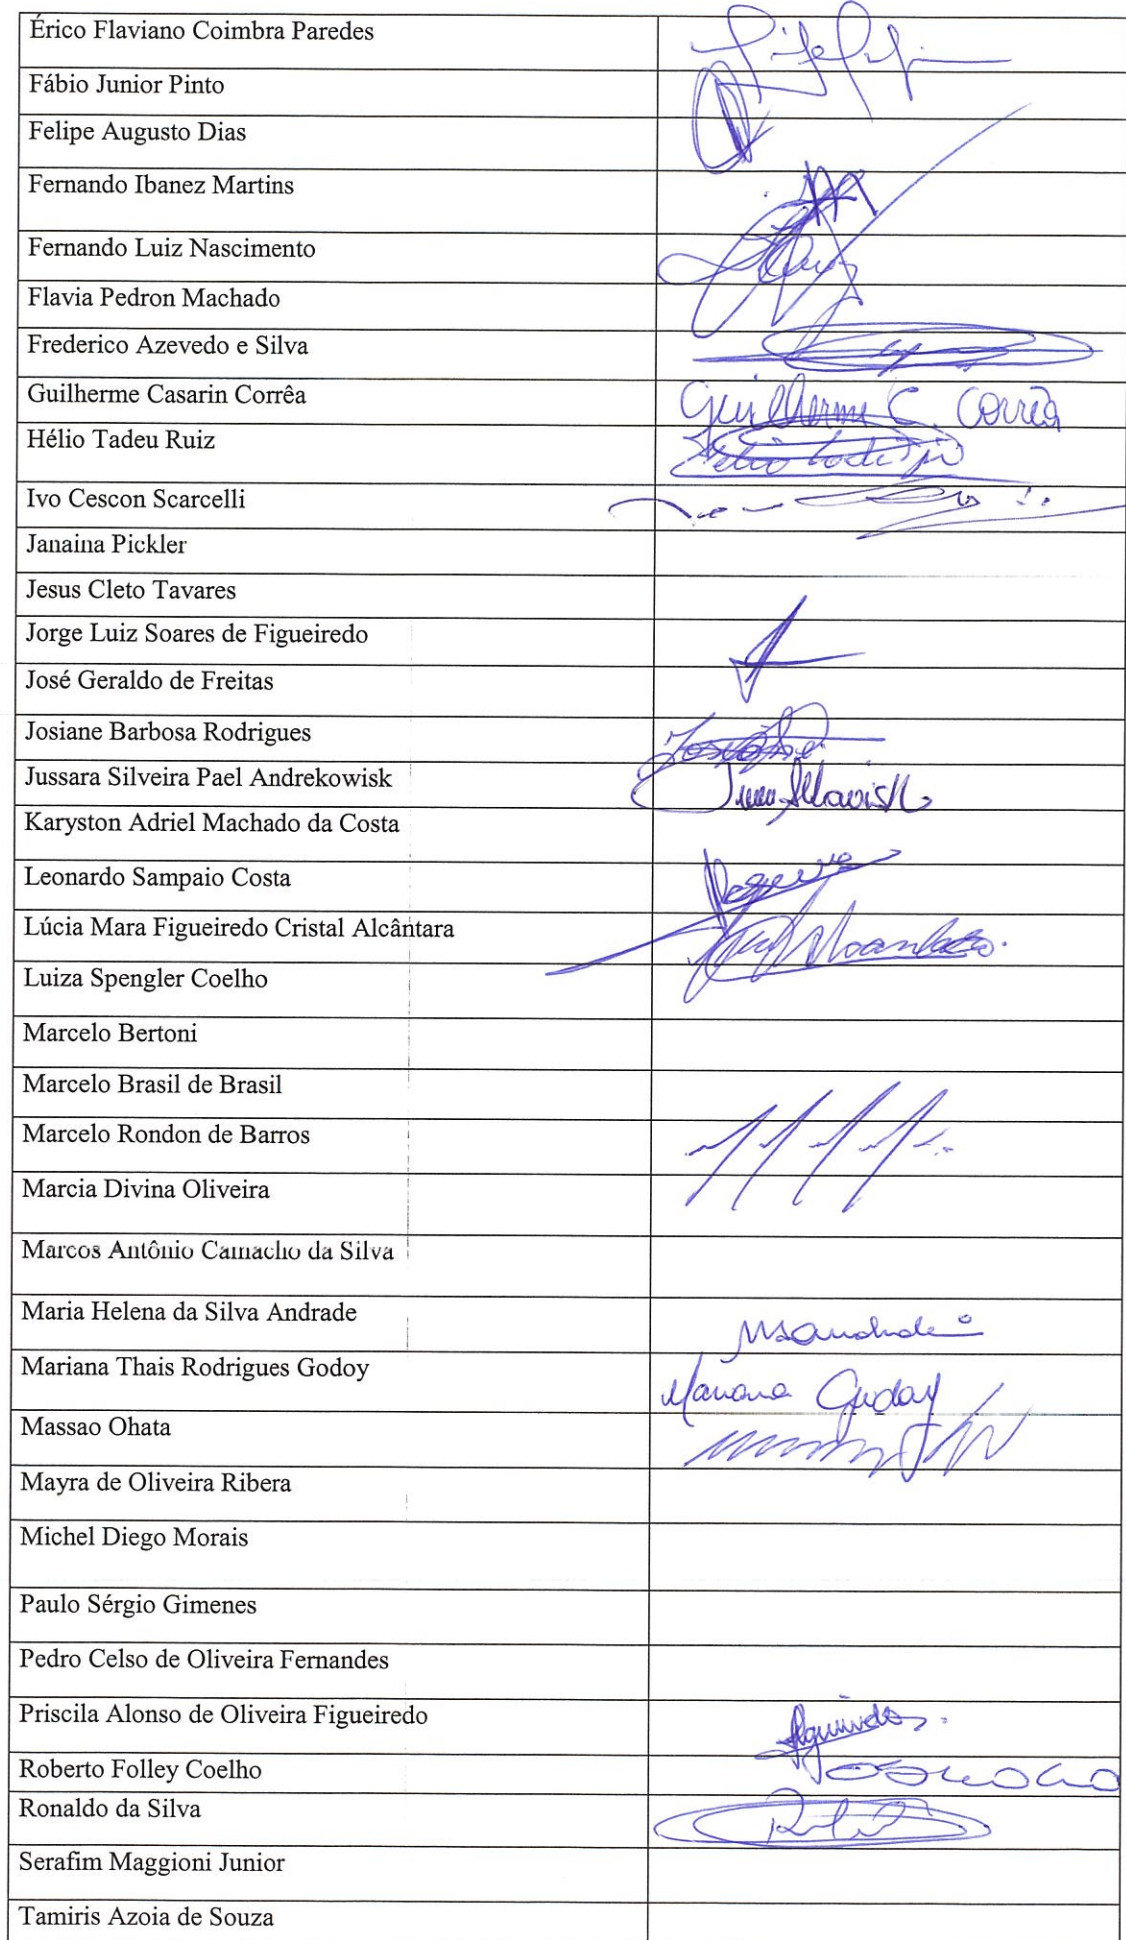 Érico Flaviano Coimbra Paredes
Fábio Junior Pinto
Felipe Augusto Dias
Fernando Ibanez Martins
Fernando Luiz Nascimento
Flavia Pedron Machado
Frederico Azevedo e Silva
Guilherme Casarin Corrêa Guilherme C. Corrêa
Hélio Tadeu Ruiz
Ivo Cescon Scarcelli
Janaina Pickler
Jesus Cleto Tavares
Jorge Luiz Soares de Figueiredo
José Geraldo de Freitas
Josiane Barbosa Rodrigues
Jussara Silveira Pael Andrekowisk
Karyston Adriel Machado da Costa
Leonardo Sampaio Costa
Lúcia Mara Figueiredo Cristal Alcântara
Luiza Spengler Coelho
Marcelo Bertoni
Marcelo Brasil de Brasil
Marcelo Rondon de Barros
Marcia Divina Oliveira
Marcos Antônio Camacho da Silva
Maria Helena da Silva Andrade
Mariana Thais Rodrigues Godoy Mariana Godoy
Massao Ohata
Mayra de Oliveira Ribera
Michel Diego Morais
Paulo Sérgio Gimenes
Pedro Celso de Oliveira Fernandes
Priscila Alonso de Oliveira Figueiredo
Roberto Folley Coelho
Ronaldo da Silva
Serafim Maggioni Junior
Tamiris Azoia de Souza